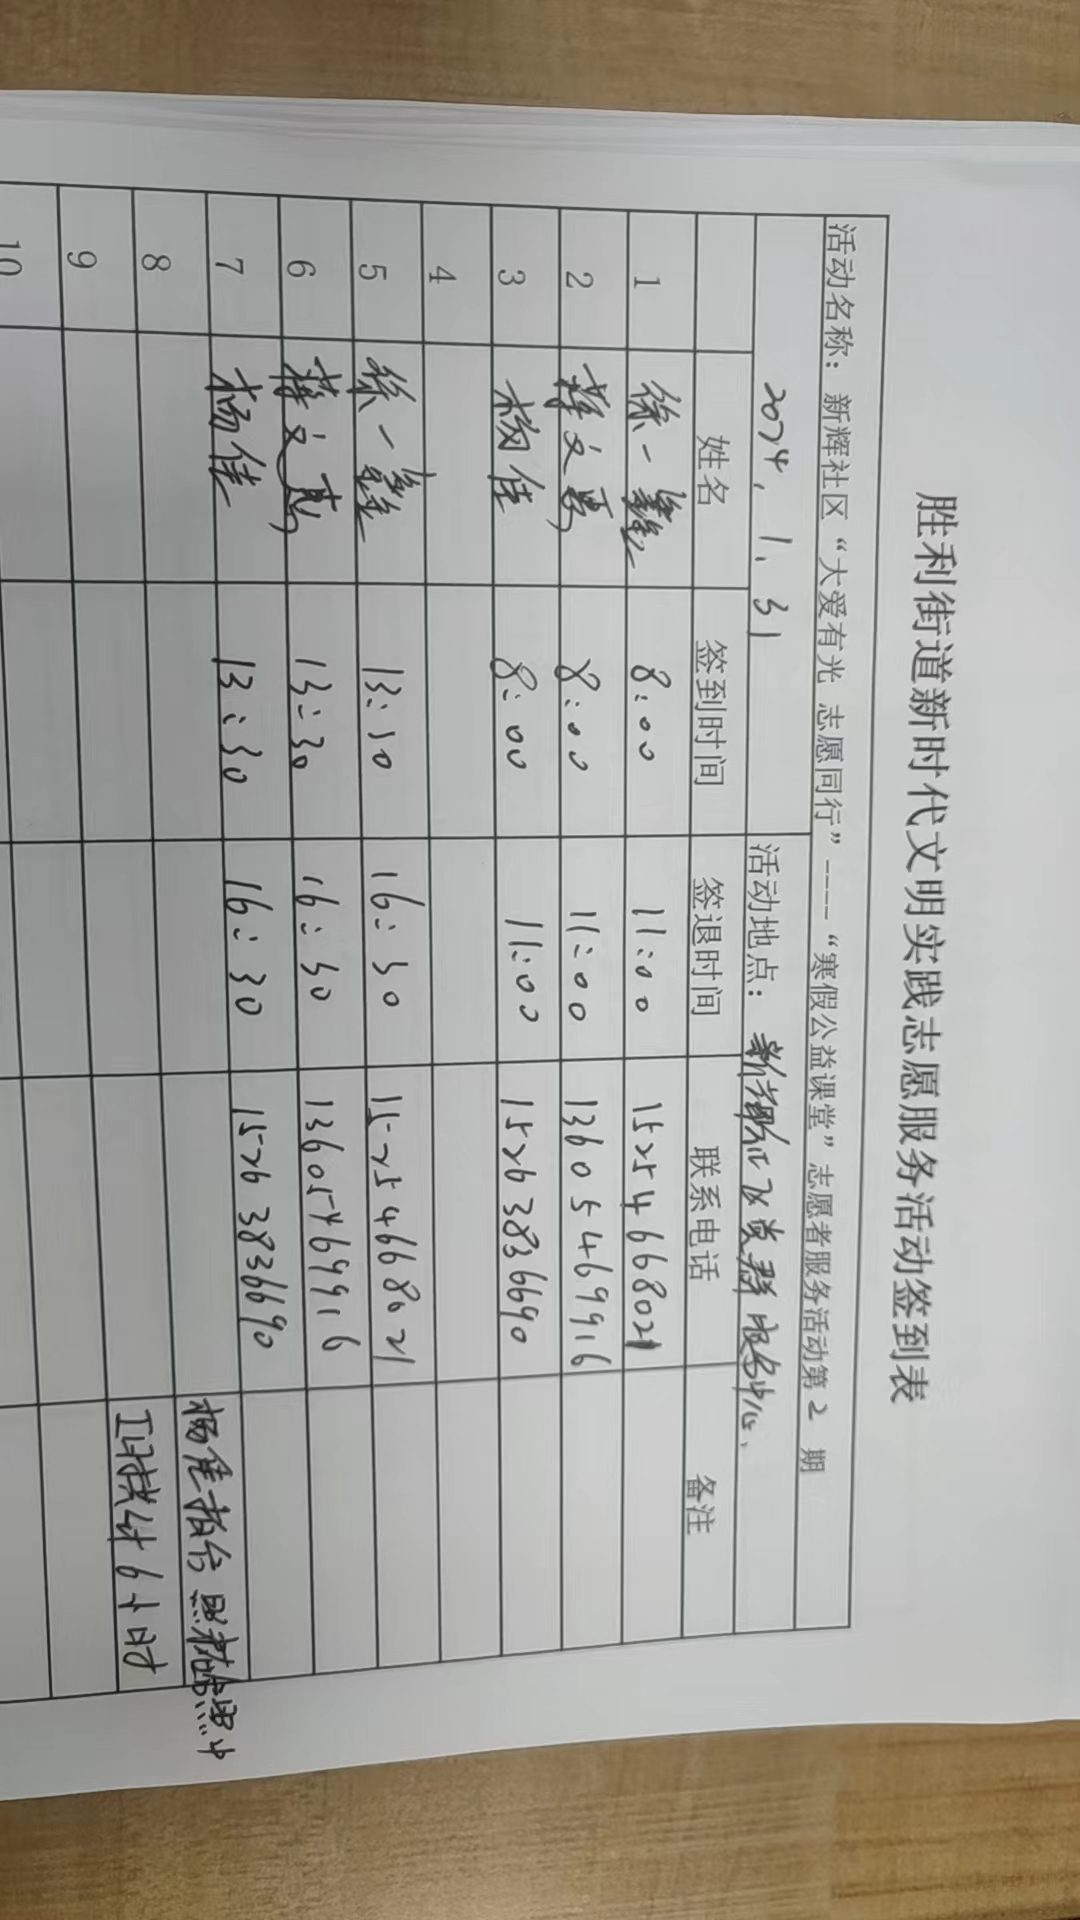 胜利街道新时代文明实践志愿服务活动签到表
活动名称：新辉社区“大爱有光 志愿同行”----“寒假公益课堂”志愿者服务活动第2期
2024.1.31 活动地点：新辉社区党群服务中心.
姓名 签到时间 签退时间 联系电话 备注
1 徐一鑫 8:00 11:00 15254668021
2 蒋文 8:00 11:00 13605469916
3 杨佳 8:00 11:00 15263836690
4
5 徐一鑫 13:30 16:30 15254668021
6 蒋文 13:30 16:30 13605469916
7 杨佳 13:30 16:30 15263836690
8 杨佳拍合照
9 工时共计6小时
10